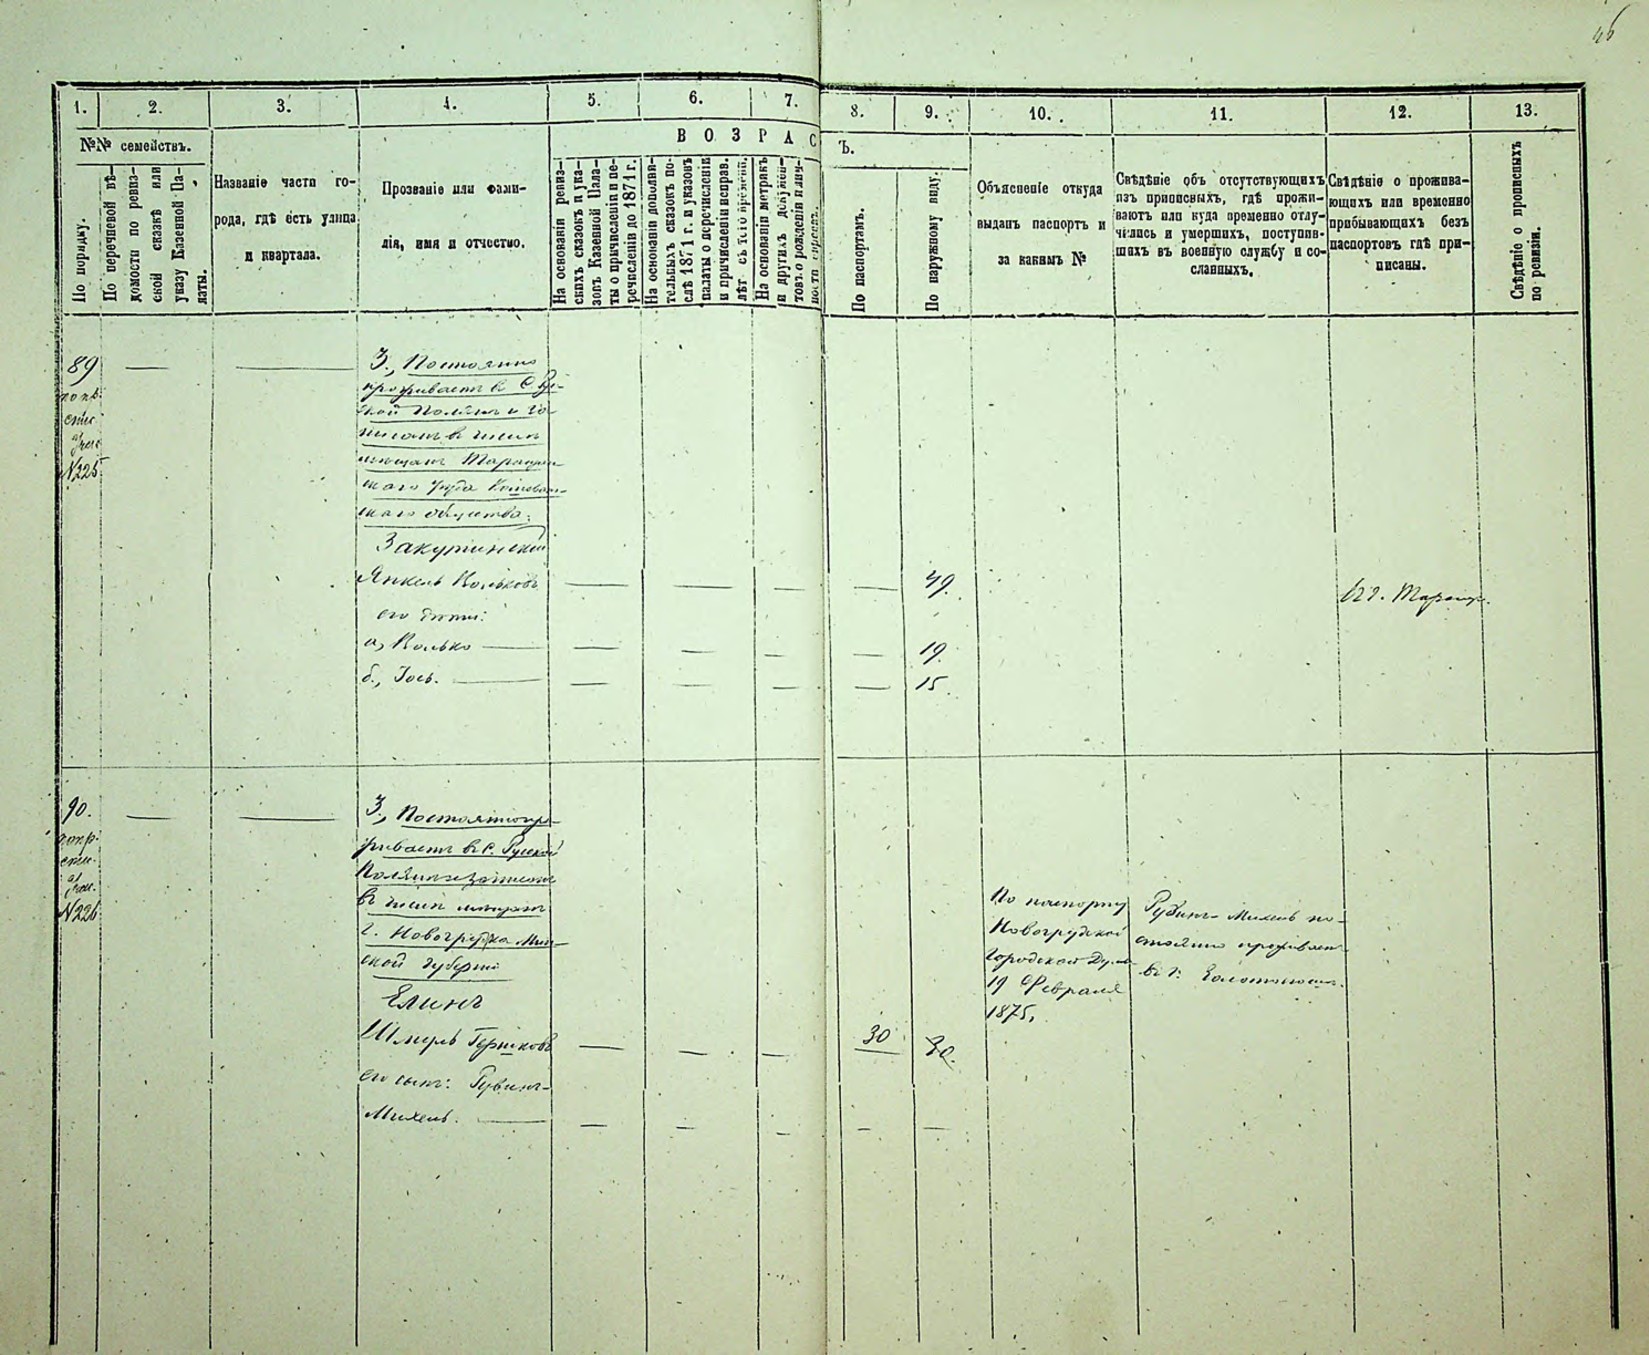 46
1. 2. 3. 4. 5. 6. 7. 8. 9. 10. 11. 12. 13.
№№ семействъ.
По порядку.
По перечневой вѣ-
домости по ревиз-
ской сказкѣ или
указу Казенной Па-
латы.
Названіе части го-
рода, гдѣ есть улица
и квартала.
Прозваніе или фами-
лія, имя и отчество.
ВОЗРАС
Ъ.
На основаніи ревиз-
скихъ сказокъ и ука-
зовъ Казенной Пала-
ты о причисленіи и пе-
речисленіи до 1871 г.
На основаніи дополни-
тельныхъ сказокъ по-
слѣ 1871 г. и указовъ
палаты о перечисленіи
и причисленіи исправ.
лѣт съ сего времени.
На основаніи метрикъ
и другихъ докумен-
товъ о рожденіи и лич-
ности евреевъ.
По паспортамъ.
По наружному виду.
Объясненіе откуда
выданъ паспортъ и
за какимъ №
Свѣдѣніе объ отсутствующихъ
изъ приписныхъ, гдѣ прожи-
ваютъ или куда временно отлу-
чились и умершихъ, поступив-
шихъ въ военную службу и со-
сланныхъ.
Свѣдѣніе о прожива-
ющихъ или временно
прибывающихъ безъ
паспортовъ гдѣ при-
писаны.
Свѣдѣніе о прописныхъ
по ревизіи.
89
№225
3., Постоянно
проживаетъ в С. Рус-
ской Полянѣ и за-
писанъ в числѣ
мѣщанъ Таращан-
скаго уѣзда
скаго общества:
Закутинскій
Янкель Вольковъ 49.
его дѣти:
а, Волько 19.
б., Іось. 15.
90.
№226
3., Постоянно про-
живаетъ в С. Русской
Полянѣ записанъ
въ числѣ мѣщанъ
г. Новогрудка Мин-
ской губерніи
Елинъ
Шмуль Гершковъ 30 30.
его сынъ: Рувинъ-
Михель.
По паспорту
Новогрудской
Городской Думы
19 Февраля
1875.
Рувинъ-Михель по-
стоянно проживает
въ г. Золотоноша.